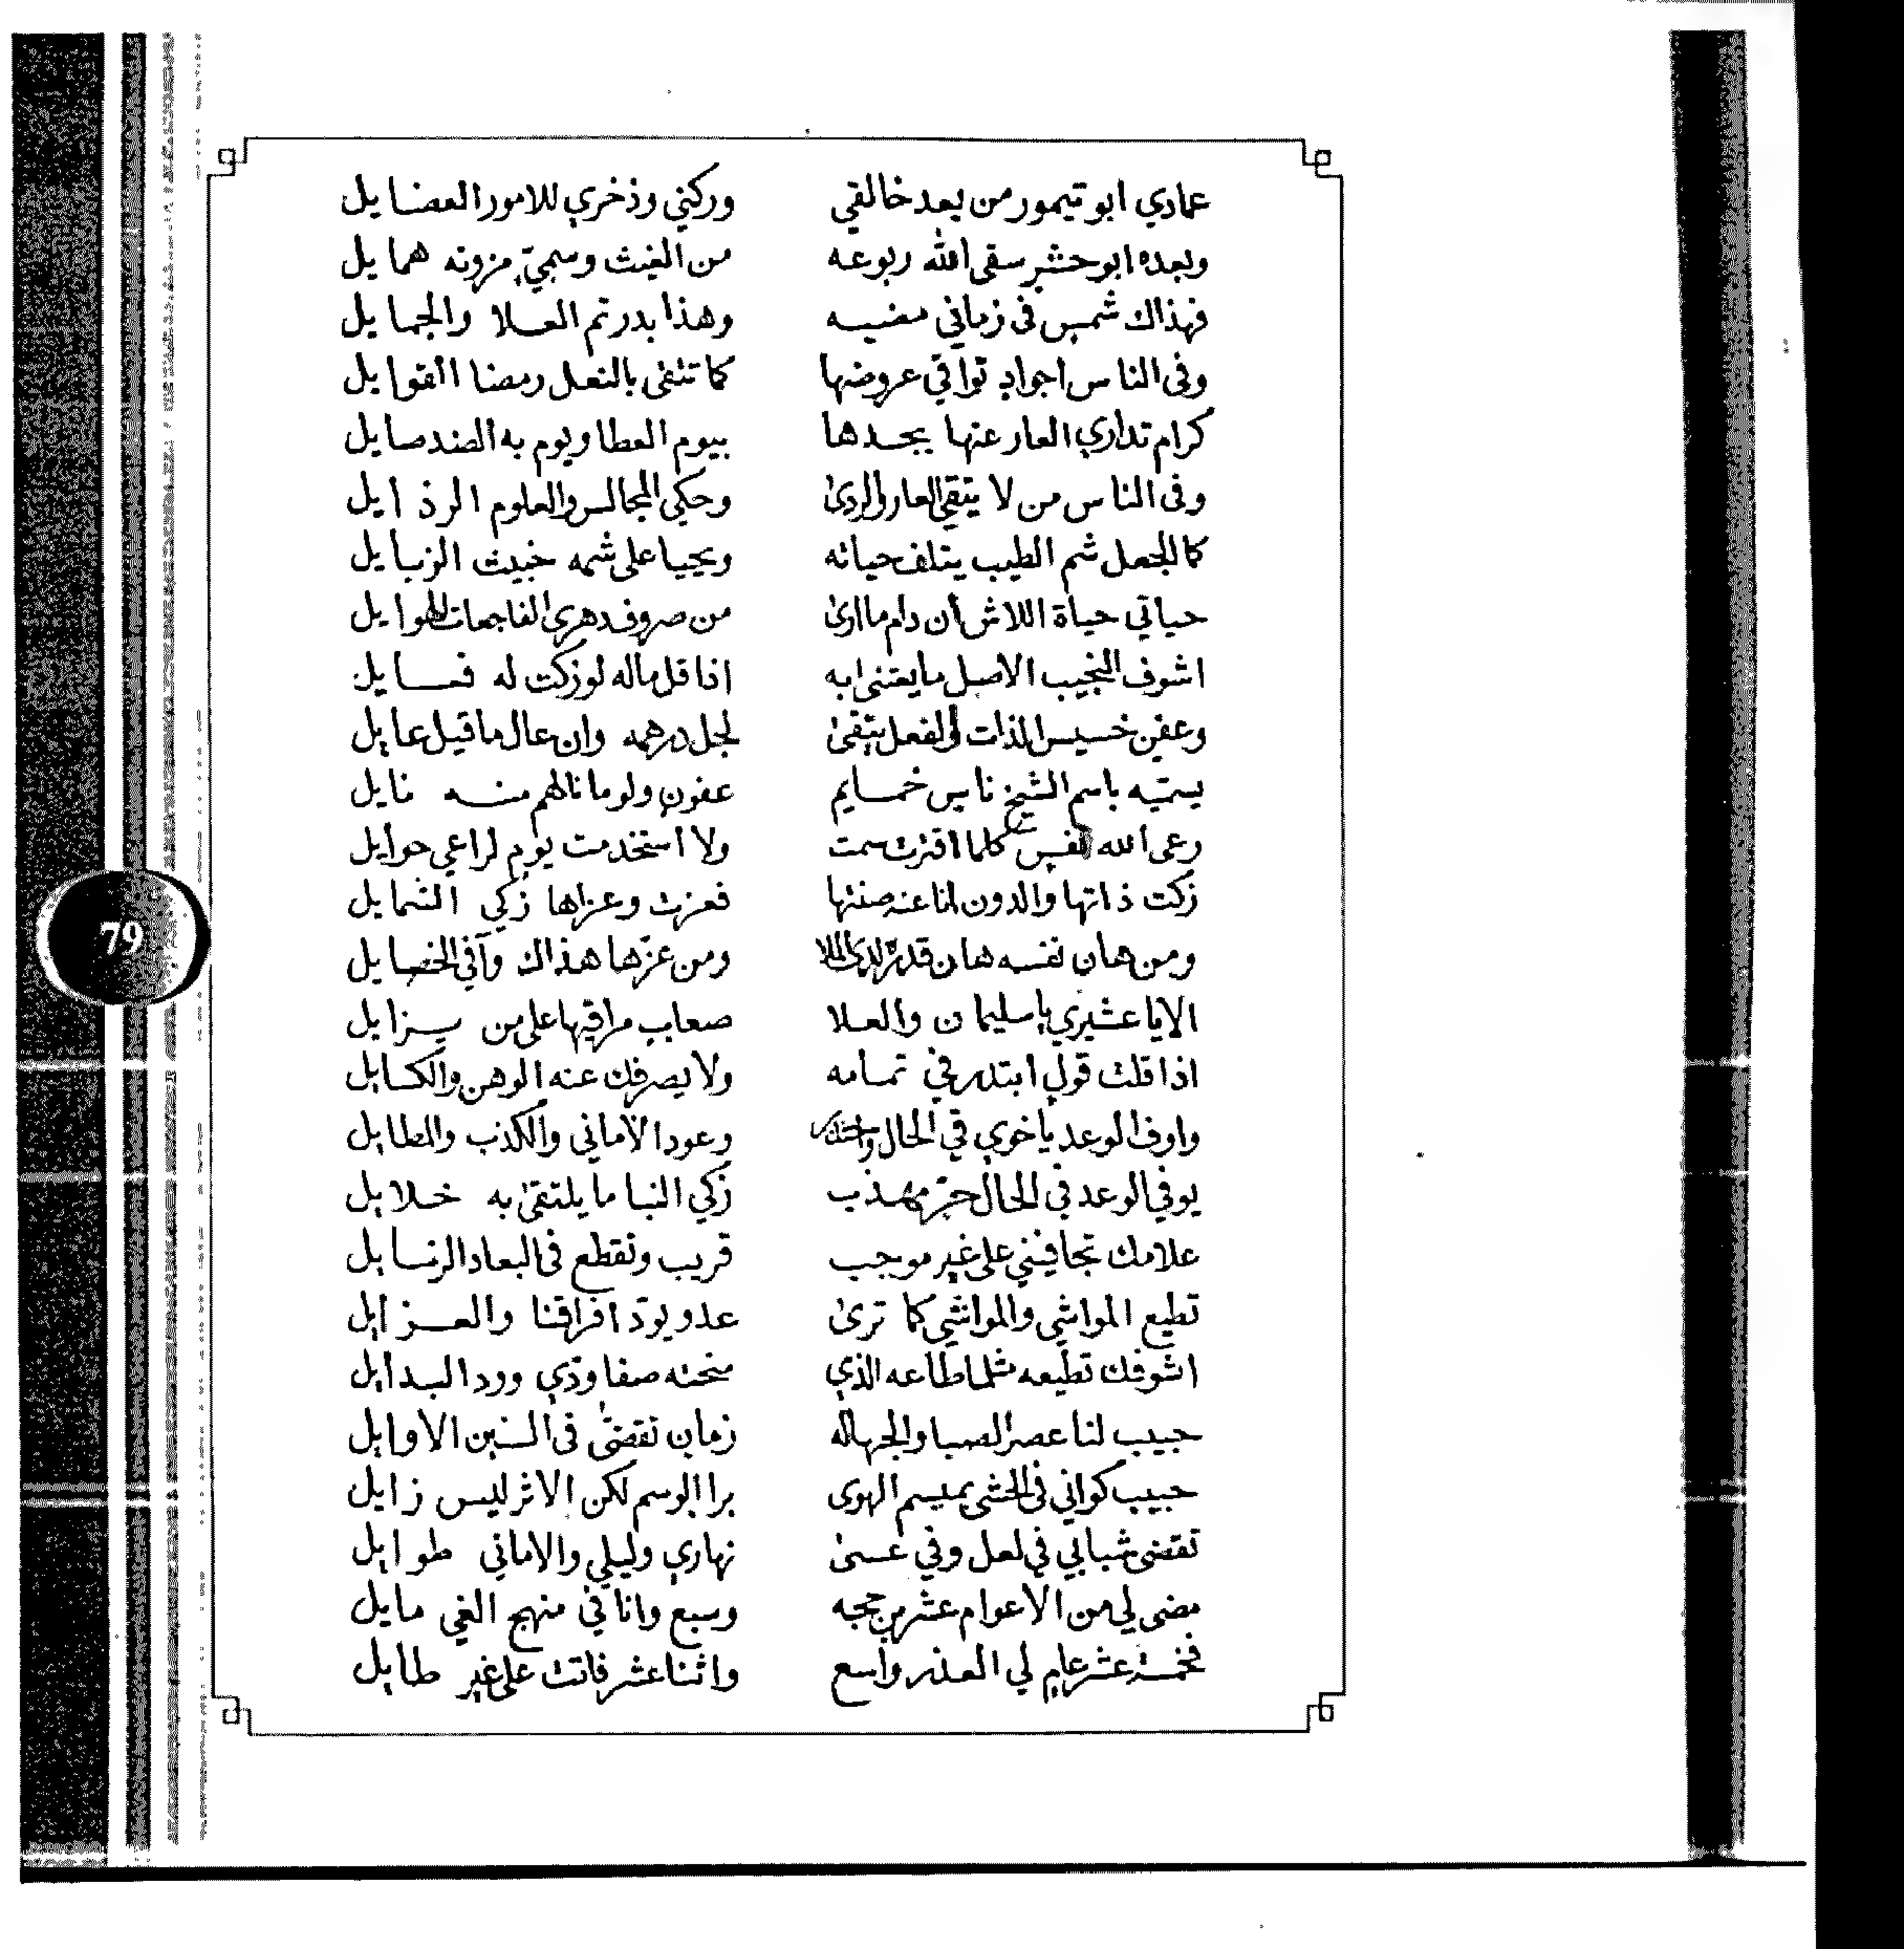 عمادي ابو تيمور من بعد خالقي وركني وذخري للامور العضايل
وبعده ابو حشر سقى الله ربوعه من الغيث وسميّ مزونه همايل
فهذاك شمس في زماني مضيه وهذا بدر تم العلا والجمايل
وفى الناس اجواد توافي عروضها كما تتقى بالنعل رمضا القوايل
كرام تداري العار عنها بجدها بيوم العطا ويوم به الضد صايل
وفى الناس من لا يتقي العار والردى وحكي المجالس والعلوم الرذايل
كالجعل شم الطيب يتلف حياته ويحيا على شمه خبيث الزبايل
حياتي حياة اللاش أن دام ما ارى من صروف دهري الفاجعات الهوايل
اشوف النجيب الاصل ما يعتنى به اذا قل ماله لو زكت له فعايل
وعفن خسيس الذات والفعل يتقى لجل درهمه وان عال ما قيل عايل
يسميه باسم الشيخ ناس خمايم عفون ولو ما نالهم منه نايل
رعى الله نفس كلما اقترت سمت ولا استخدمت يوم لراعي حوايل
زكت ذاتها والدون انا عنه صنتها فعزت وعزاها زكي الشمايل
ومن هان نفسه هان قدره لدى الملا ومن عزها هذاك وافي الخصايل
الا يا عشيري يا سليمان والعلا صعاب مراقيها على من يزايل
اذا قلت قول ابتدر في تمامه ولا يصرفك عنه الوهن والكسايل
واوف الوعد يا خوي في الحال وعود الاماني والكذب والمطايل
يوفي الوعد في الحال حرّ مهذب زكي النبا ما يلتقى به خلايل
علامك تجافيني على غير موجب قريب وتقطع فى البعاد الرسايل
تطيع المواشي والمواشي كما ترى عدو يودّ افراقنا والعزايل
اشوفك تطيعه مثلما طاعه الذي منحته صفا ودّي وورد البدايل
حبيب لنا عصر الصبا والجهاله زمان تقضى فى السنين الاوايل
حبيب كواني فى الحشى بميسم الهوى برا الوسم لكن الاثر ليس زايل
تقضى شبابي في لعل وفي عسى نهاري وليلي والاماني طوايل
مضى لي من الاعوام عشرين حجه وسبع وانا في منهج الغي مايل
فخمسة عشر عام لي العذر واسع واثنا عشر فاتت على غير طايل
79